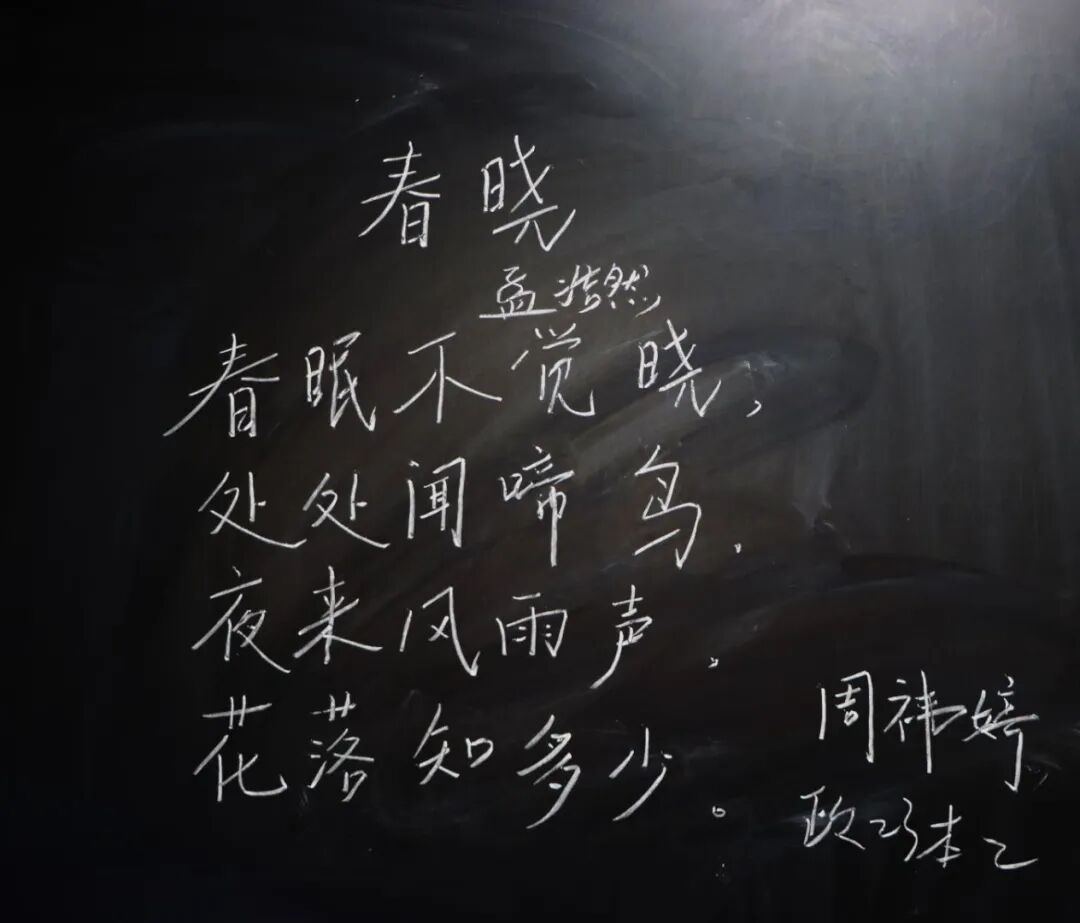 春晓
孟浩然
春眠不觉晓,
处处闻啼鸟.
夜来风雨声。
花落知多少。
周祎婷
政23本2